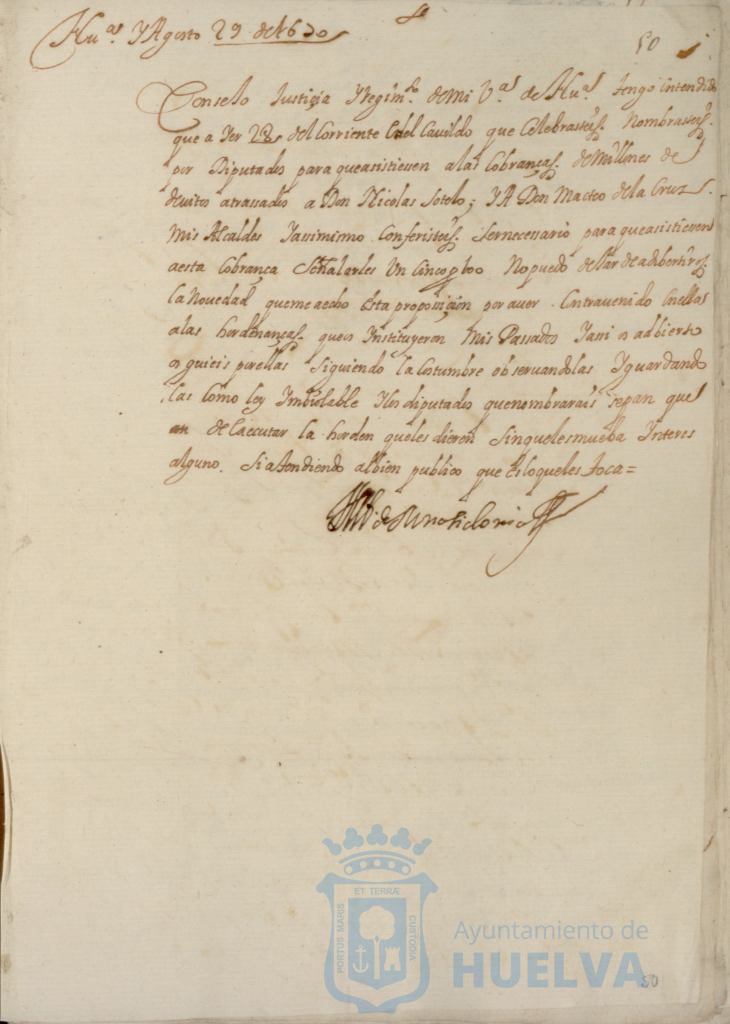 Hu.ª Y Agosto 29 de 1630
50
Conselo Justiçia Y Regim.to de mi V.ª de Hu.ª tengo intendido
que a Yer 28 del Corriente Enel Cavildo que Celebrasteis. Nombrasteis.
por Diputados para que asistiessen a las Cobranças. de Millones de
devitos atrassados a Don Nicolas Sotelo; Y A Don Matteo de la Cruz.
Mis Alcaldes Yassimismo Conferisteis. Ser necessario para que asistiesen
a esta Cobrança Señalarles Un Cinco p 100 No puedo desar de adbertiros.
la Novedad que me a echo Esta proposiçion por aver Contravenido Enellas
a las hordenanças. que os Instituyeran Mis Passados Y assi os adbierto
os guieis por ellas Siguiendo la Costumbre observandolas Y guardando
las Como ley Imbiolable Y los diputados que nombrarais sepan que
an de Eaecutar la horden que les dieren Sin que les mueba Ynteres
alguno. Si atendiendo al bien publico que Es lo que les toca =
ET TERRÆ
PORTUS MARIS
CUSTODIA
Ayuntamiento de
HUELVA
50